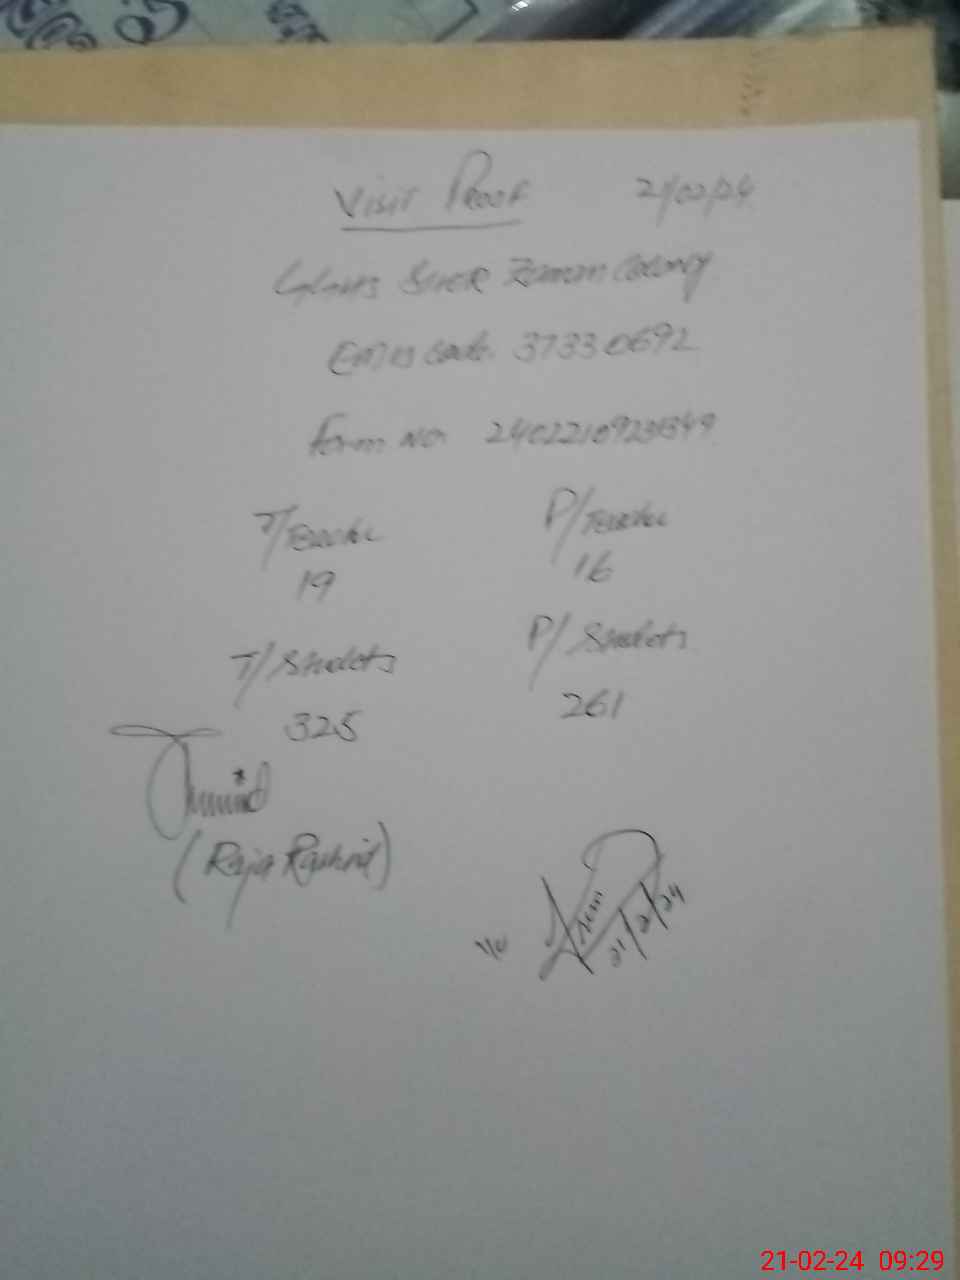 Visit Proof 21/02/24
Sher Zaman Colony
Emis Code. 37330692
Form No. 24022109231349
T/Teacher P/Teacher
19 16
T/Students P/Students
325 261
(Raja Rashid)
21/2/24
21-02-24 09:29